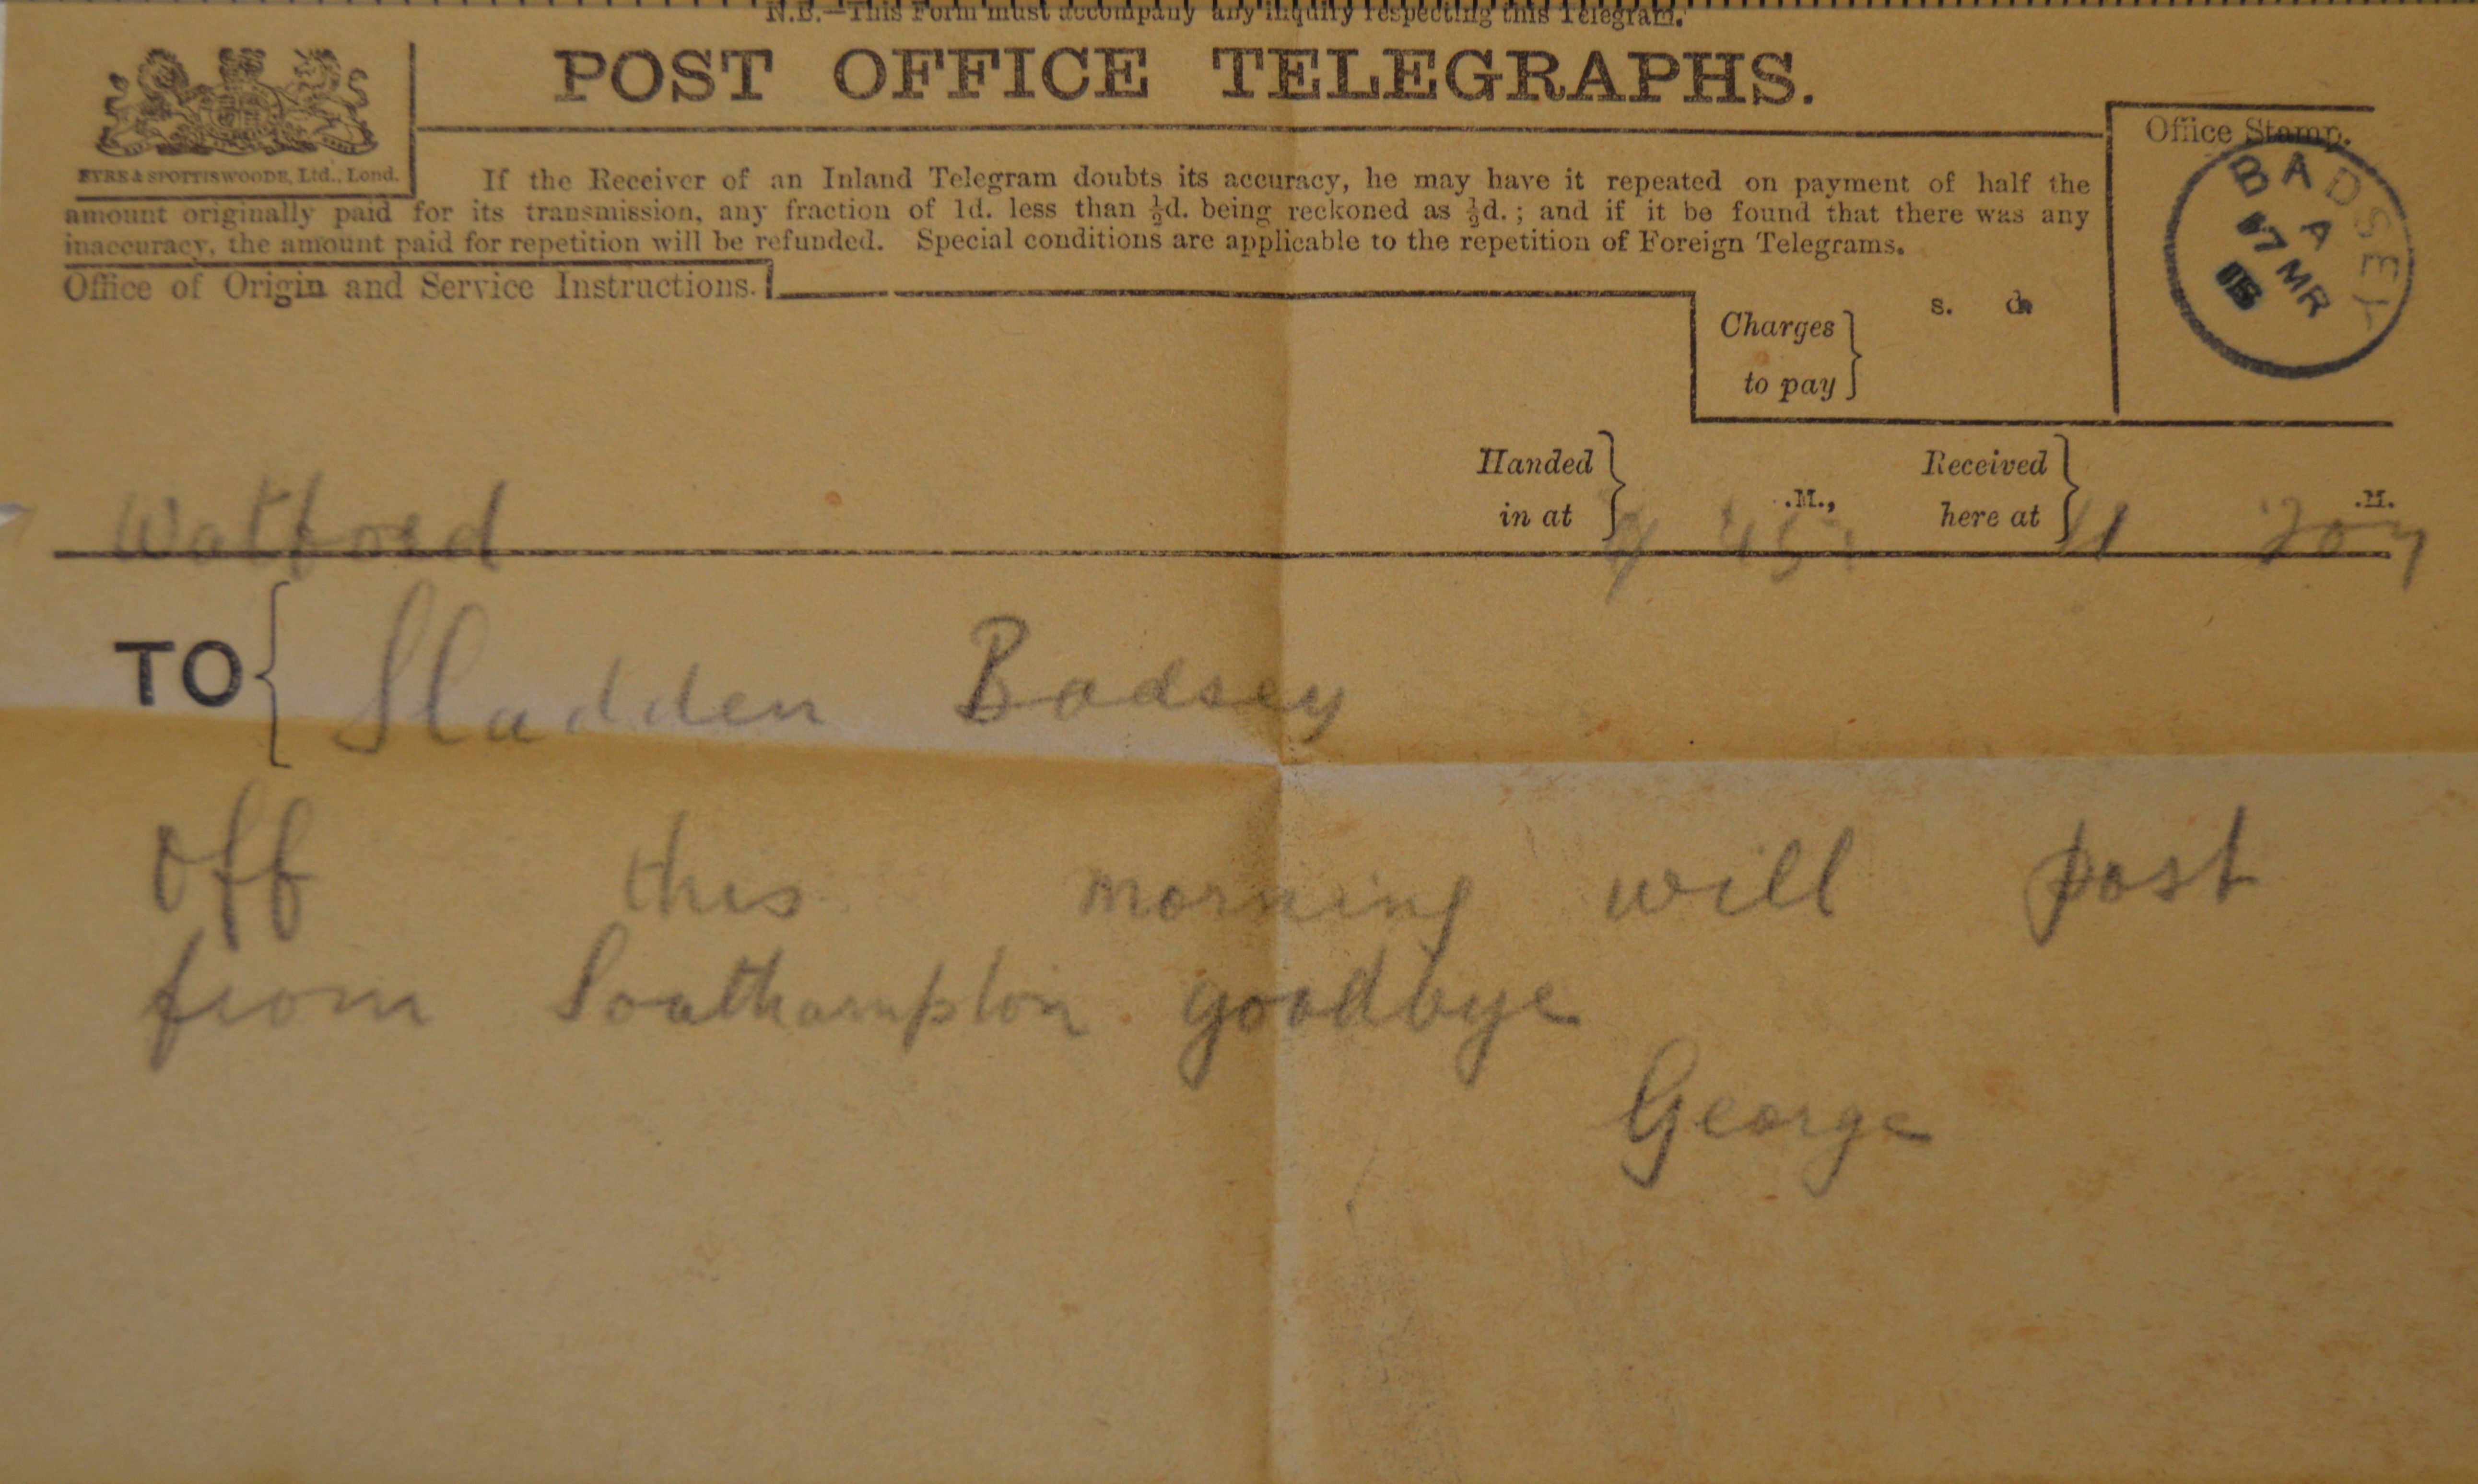 N.B.—This Form must accompany any inquiry respecting this Telegram.
POST OFFICE TELEGRAPHS.
Office Stamp.
BADSEY
A
17 MR
EYRE & SPOTTISWOODE, Ltd., Lond.
If the Receiver of an Inland Telegram doubts its accuracy, he may have it repeated on payment of half the
amount originally paid for its transmission, any fraction of 1d. less than ½d. being reckoned as ½d.; and if it be found that there was any
inaccuracy, the amount paid for repetition will be refunded. Special conditions are applicable to the repetition of Foreign Telegrams.
Office of Origin and Service Instructions.
s. d.
Charges
to pay
Handed
in at
.M.,
Received
here at
.M.
Watford
9 45
11 20
TO Sladden Badsey
Off this morning will post
from Southampton goodbye
George